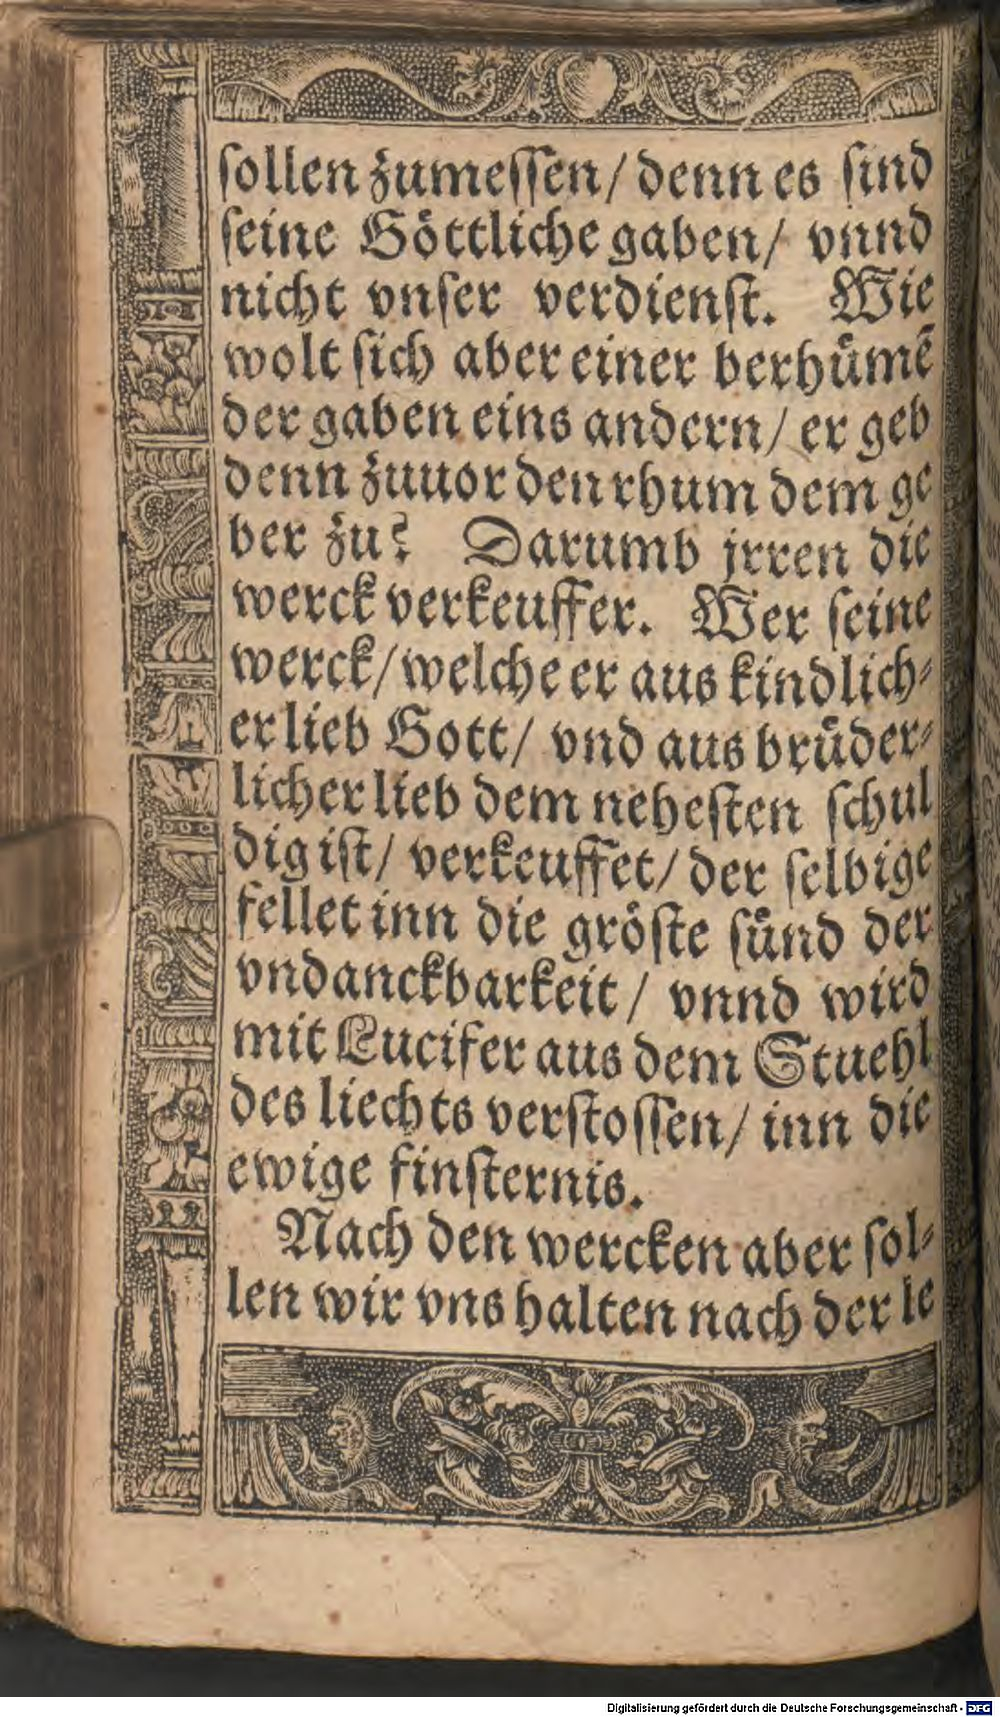 sollen zumessen/ denn es sind
seine Göttliche gaben/ vnnd
nicht vnser verdienst. Wie
wolt sich aber einer berhümē
der gaben eins andern/ er geb
denn zuuor den rhum dem ge
ber zu? Darumb jrren die
werck verkeuffer. Wer seine
werck/ welche er aus kindlich⸗
er lieb Gott/ vnd aus brüder⸗
licher lieb dem nehesten schul
dig ist/ verkeuffet/ der selbige
fellet inn die gröste sünd der
vndanckbarkeit/ vnnd wird
mit Lucifer aus dem Stuehl
des liechts verstossen/ inn die
ewige finsternis.
Nach den wercken aber sol⸗
len wir vns halten nach der le
Digitalisierung gefördert durch die Deutsche Forschungsgemeinschaft - DFG